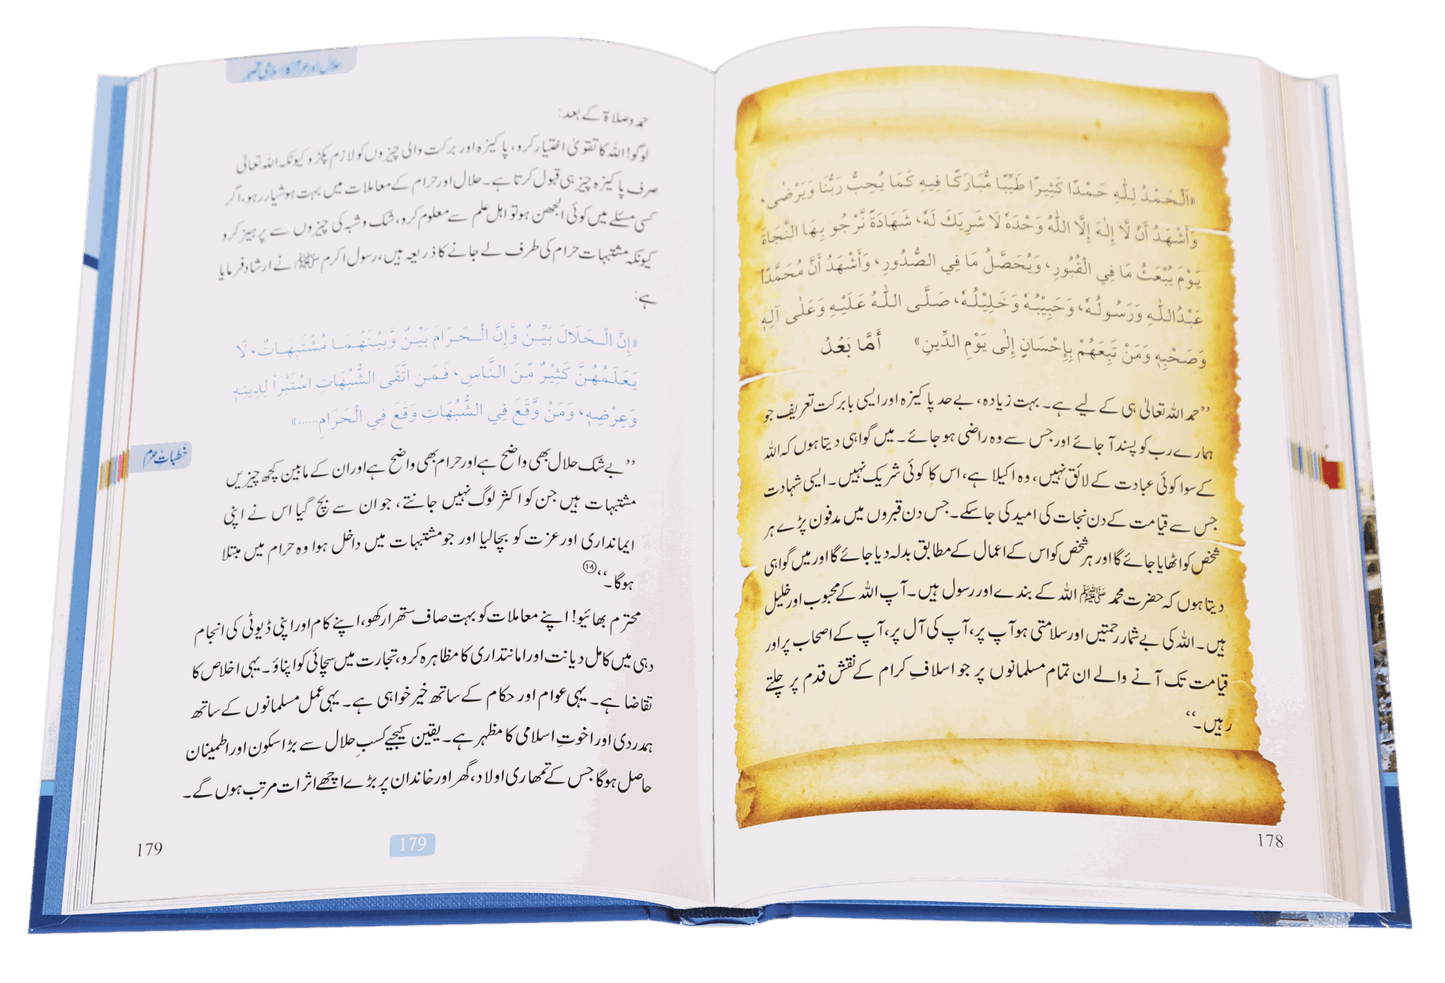 «اَلْحَمْدُ لِلّٰهِ حَمْدًا كَثِيرًا طَيِّبًا مُّبَارَكًا فِيهِ كَمَا يُحِبُّ رَبُّنَا وَيَرْضٰى،
وَأَشْهَدُ أَنْ لَّا إِلٰهَ إِلَّا اللّٰهُ وَحْدَهٗ لَا شَرِيكَ لَهٗ، شَهَادَةً نَّرْجُو بِهَا النَّجَاةَ
يَوْمَ يُبْعَثُ مَا فِي الْقُبُورِ، وَيُحَصَّلُ مَا فِي الصُّدُورِ، وَأَشْهَدُ أَنَّ مُحَمَّدًا
عَبْدُاللّٰهِ وَرَسُولُهٗ، وَحَبِيْبُهٗ وَخَلِيْلُهٗ، صَلَّى اللّٰهُ عَلَيْهِ وَعَلٰى آلِهٖ
وَصَحْبِهٖ وَمَنْ تَبِعَهُمْ بِإِحْسَانٍ إِلٰى يَوْمِ الدِّينِ» أَمَّا بَعْدُ
’’حمد اللہ تعالیٰ ہی کے لیے ہے۔ بہت زیادہ، بے حد پاکیزہ اور ایسی بابرکت تعریف جو
ہمارے رب کو پسند آ جائے اور جس سے وہ راضی ہو جائے۔ میں گواہی دیتا ہوں کہ اللہ
کے سوا کوئی عبادت کے لائق نہیں، وہ اکیلا ہے، اس کا کوئی شریک نہیں۔ ایسی شہادت
جس سے قیامت کے دن نجات کی امید کی جا سکے۔ جس دن قبروں میں مدفون پڑے ہر
شخص کو اٹھایا جائے گا اور ہر شخص کو اس کے اعمال کے مطابق بدلہ دیا جائے گا اور میں گواہی
دیتا ہوں کہ حضرت محمد ﷺ اللہ کے بندے اور رسول ہیں۔ آپ اللہ کے محبوب اور خلیل
ہیں۔ اللہ کی بے شمار رحمتیں اور سلامتی ہو آپ پر، آپ کی آل پر، آپ کے اصحاب پر اور
قیامت تک آنے والے ان تمام مسلمانوں پر جو اسلافِ کرام کے نقش قدم پر چلتے
رہیں۔‘‘
178
حلال اور حرام کا اسلامی تصور
حمد و صلاۃ کے بعد:
لوگو! اللہ کا تقویٰ اختیار کرو، پاکیزہ اور برکت والی چیزوں کو لازم پکڑو کیونکہ اللہ تعالیٰ
صرف پاکیزہ چیز ہی قبول کرتا ہے۔ حلال اور حرام کے معاملات میں بہت ہوشیار رہو، اگر
کسی مسئلے میں کوئی الجھن ہو تو اہل علم سے معلوم کرو، شک و شبہ کی چیزوں سے پرہیز کرو
کیونکہ مشتبہات حرام کی طرف لے جانے کا ذریعہ ہیں، رسول اکرم ﷺ نے ارشاد فرمایا
ہے:
«إِنَّ الْحَلَالَ بَيِّنٌ وَّإِنَّ الْحَرَامَ بَيِّنٌ وَّبَيْنَهُمَا مُشْتَبِهَاتٌ، لَا
يَعْلَمُهُنَّ كَثِيْرٌ مِّنَ النَّاسِ، فَمَنِ اتَّقَى الشُّبُهَاتِ اسْتَبْرَأَ لِدِينِهٖ
وَعِرْضِهٖ، وَمَنْ وَّقَعَ فِي الشُّبُهَاتِ وَقَعَ فِي الْحَرَامِ......»
خطباتِ حرم
’’بے شک حلال بھی واضح ہے اور حرام بھی واضح ہے اور ان کے مابین کچھ چیزیں
مشتبہات ہیں جن کو اکثر لوگ نہیں جانتے، جو ان سے بچ گیا اس نے اپنی
ایمانداری اور عزت کو بچا لیا اور جو مشتبہات میں داخل ہوا وہ حرام میں مبتلا
ہو گا۔‘‘ ⑭
محترم بھائیو! اپنے معاملات کو بہت صاف ستھرا رکھو، اپنے کام اور اپنی ڈیوٹی کی انجام
دہی میں کامل دیانت اور امانتداری کا مظاہرہ کرو، تجارت میں سچائی کو اپناؤ۔ یہی اخلاص کا
تقاضا ہے۔ یہی عوام اور حکام کے ساتھ خیر خواہی ہے۔ یہی عمل مسلمانوں کے ساتھ
ہمدردی اور اخوتِ اسلامی کا مظہر ہے۔ یقین کیجیے کسبِ حلال سے بڑا سکون اور اطمینان
حاصل ہوگا جس کے تمھاری اولاد، گھر اور خاندان پر بڑے اچھے اثرات مرتب ہوں گے۔
179
179